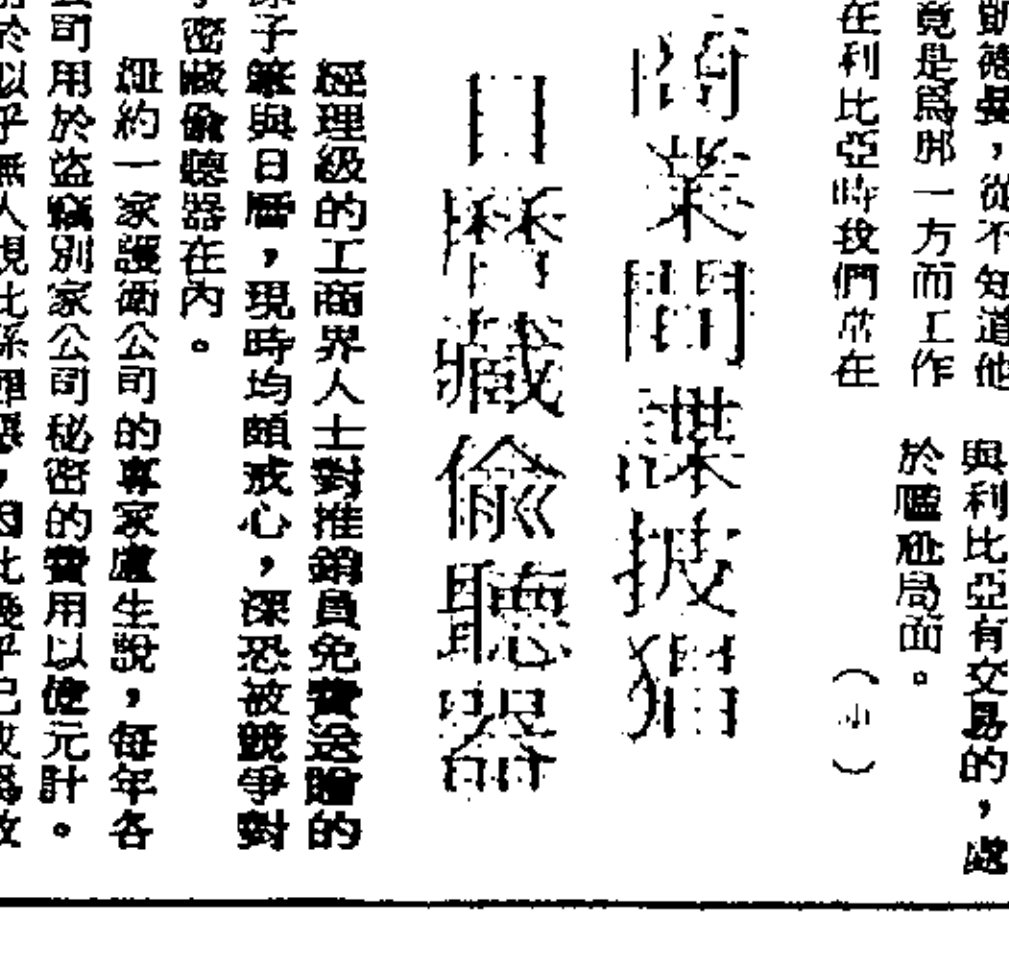 凱德曼，從不知道他
竟是爲那一方而工作
在利比亞時我們常在
與利比亞有交易的，處
於尷尬局面。
（中）
商業間諜披猖
日曆藏偷聽器
經理級的工商界人士對推銷員免費送贈的
原子筆與日曆，現時均頗戒心，深恐被競爭對
手密藏偷聽器在內。
紐約一家護衛公司的專家盧生說，每年各
公司用於盜竊別家公司秘密的費用以億元計。
由於似乎無人視此係罪惡，因此幾乎已成爲放